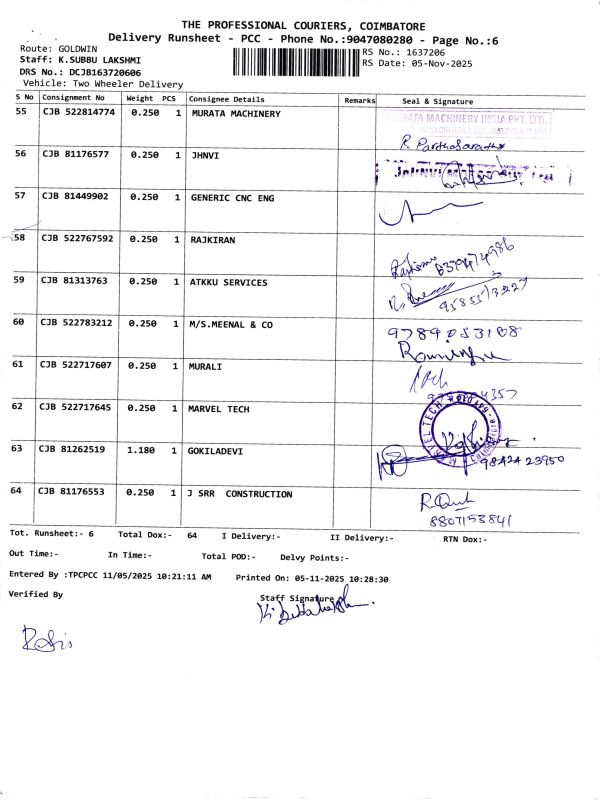 THE PROFESSIONAL COURIERS, COIMBATORE
Delivery Runsheet - PCC - Phone No.:9047080280 - Page No.:6
Route: GOLDWIN
RS No.: 1637206
Staff: K.SUBBU LAKSHMI
RS Date: 05-Nov-2025
DRS No.: DCJB163720606
Vehicle: Two Wheeler Delivery
S No Consignment No Weight PCS Consignee Details Remarks Seal & Signature
55 CJB 522814774 0.250 1 MURATA MACHINERY
MURATA MACHINERY INDIA PVT. LTD.
R. Parthasarathy
56 CJB 81176577 0.250 1 JHNVI
57 CJB 81449902 0.250 1 GENERIC CNC ENG
58 CJB 522767592 0.250 1 RAJKIRAN
6379474986
59 CJB 81313763 0.250 1 ATKKU SERVICES
60 CJB 522783212 0.250 1 M/S.MEENAL & CO
61 CJB 522717607 0.250 1 MURALI
62 CJB 522717645 0.250 1 MARVEL TECH
MARVEL TECH
63 CJB 81262519 1.180 1 GOKILADEVI
98424 23950
64 CJB 81176553 0.250 1 J SRR CONSTRUCTION
8807153841
Tot. Runsheet:- 6 Total Dox:- 64 I Delivery:- II Delivery:- RTN Dox:-
Out Time:- In Time:- Total POD:- Delvy Points:-
Entered By :TPCPCC 11/05/2025 10:21:11 AM Printed On: 05-11-2025 10:28:30
Verified By Staff Signature